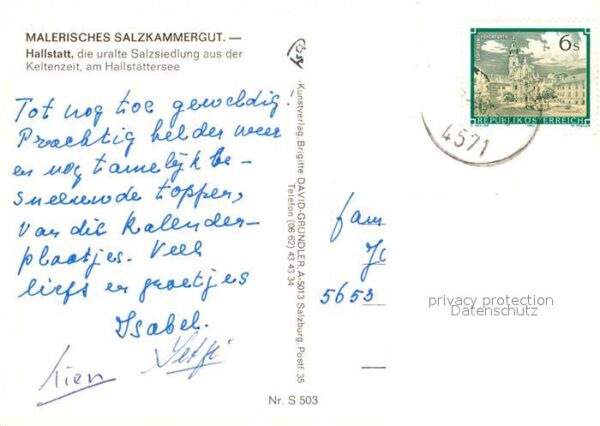 MALERISCHES SALZKAMMERGUT. —
Hallstatt, die uralte Salzsiedlung aus der
Keltenzeit, am Hallstättersee
Tot nog toe geweldig!
Prachtig helder weer
en nog tamelijk be-
sneeuwde toppen,
Van die Kalender-
plaatjes. Veel
liefs en groetjes
Isabel.
Lien
Nr. S 503
Kunstverlag, Brigitte DAVID-GRÜNDLER, A-5013 Salzburg, Postf. 35
Telefon (06 62) 43 43 34
6 S
REPUBLIK ÖSTERREICH
4571
fam
5653
privacy protection
Datenschutz